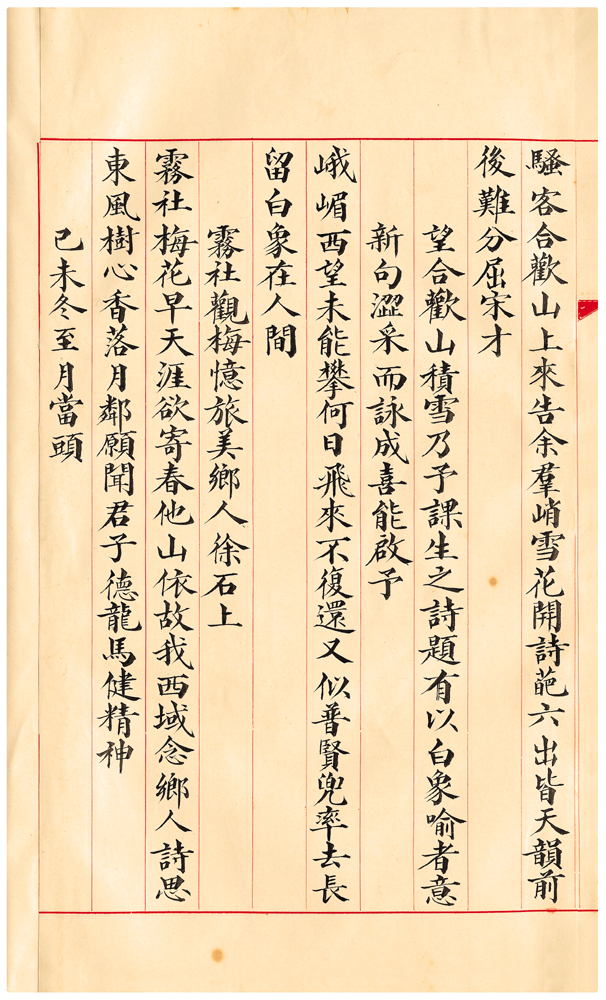 騷客合歡山上來告余羣峭雪花開詩葩六出皆天韻前
後難分屈宋才
望合歡山積雪乃予課生之詩題有以白象喻者意
新句澀采而詠成喜能啟予
峨嵋西望未能攀何日飛來不復還又似普賢兜率去長
留白象在人間
霧社觀梅憶旅美鄉人徐石上
霧社梅花早天涯欲寄春他山依故我西域念鄉人詩思
東風樹心香落月鄰願聞君子德龍馬健精神
己未冬至月當頭